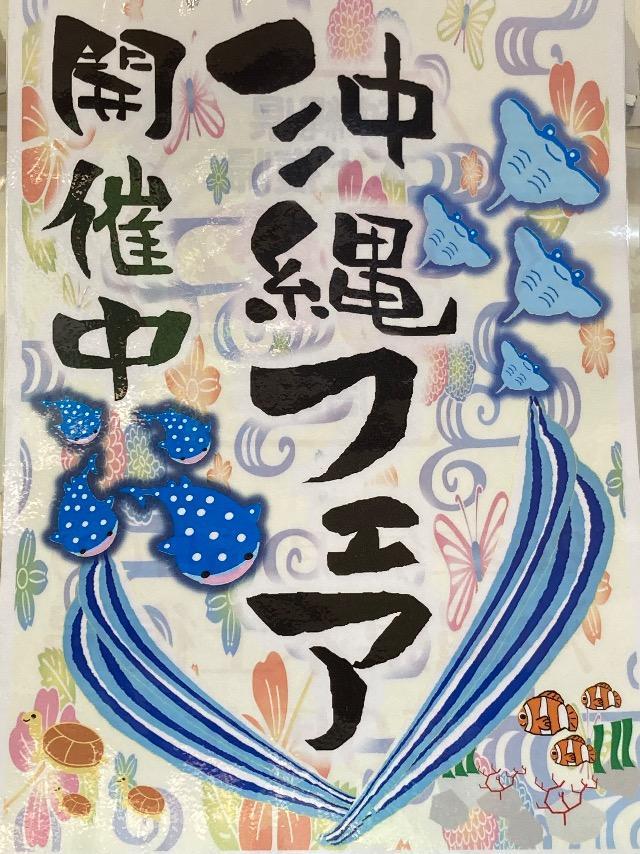 沖縄フェア
開催中